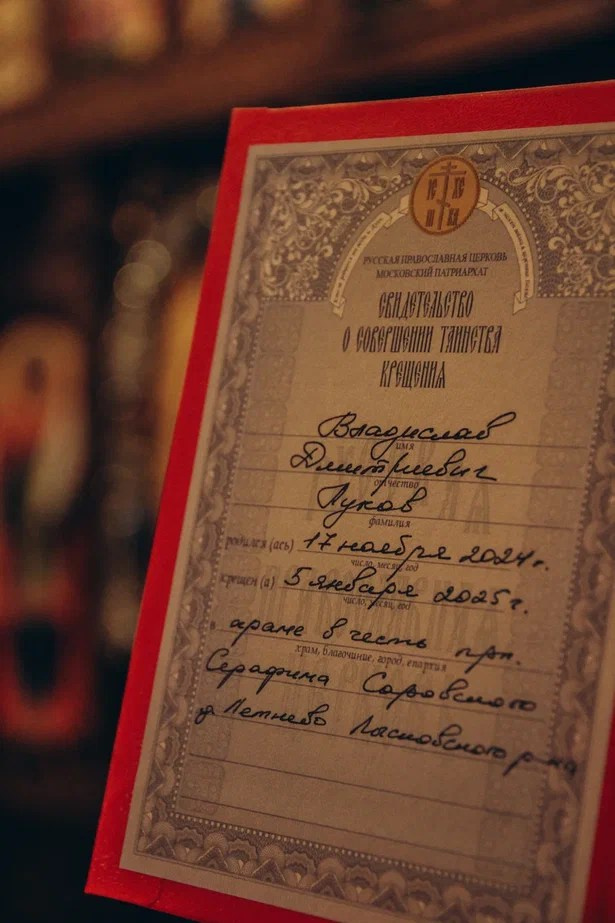 IC XC
НИ КА
РУССКАЯ ПРАВОСЛАВНАЯ ЦЕРКОВЬ
МОСКОВСКИЙ ПАТРИАРХАТ
СВИДЕТЕЛЬСТВО
О СОВЕРШЕНИИ ТАИНСТВА
КРЕЩЕНИЯ
Владислав
имя
Дмитриевич
отчество
Луков
фамилия
родился (ась) 17 ноября 2024 г.
число, месяц, год
крещен (а) 5 января 2025 г.
число, месяц, год
в храме в честь прп.
храм, благочиние, город, епархия
Серафима Саровского
д. Летнево Лысковского р-на